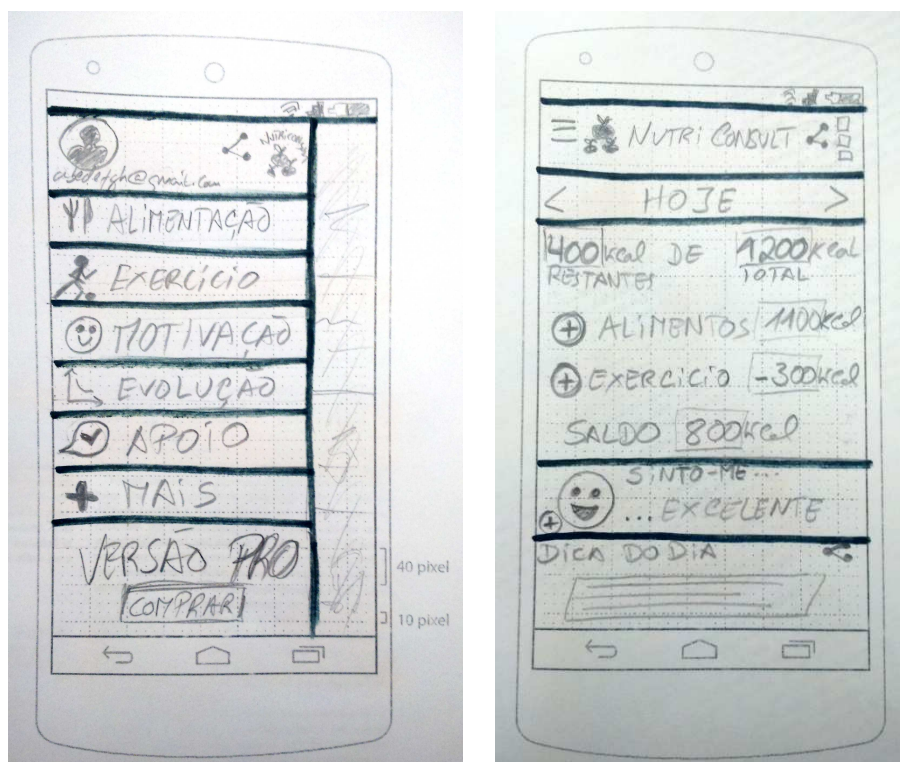 NUTRICONSULT
abcdefgh@gmail.com
ALIMENTAÇÃO
EXERCÍCIO
MOTIVAÇÃO
EVOLUÇÃO
APOIO
+ MAIS
VERSÃO PRO
COMPRAR
40 pixel
10 pixel
NUTRI CONSULT
< HOJE >
400 kcal DE 1200 kcal
RESTANTES TOTAL
+ ALIMENTOS 1100 kcal
+ EXERCICIO -300 kcal
SALDO 800 kcal
SINTO-ME...
...EXCELENTE
DICA DO DIA